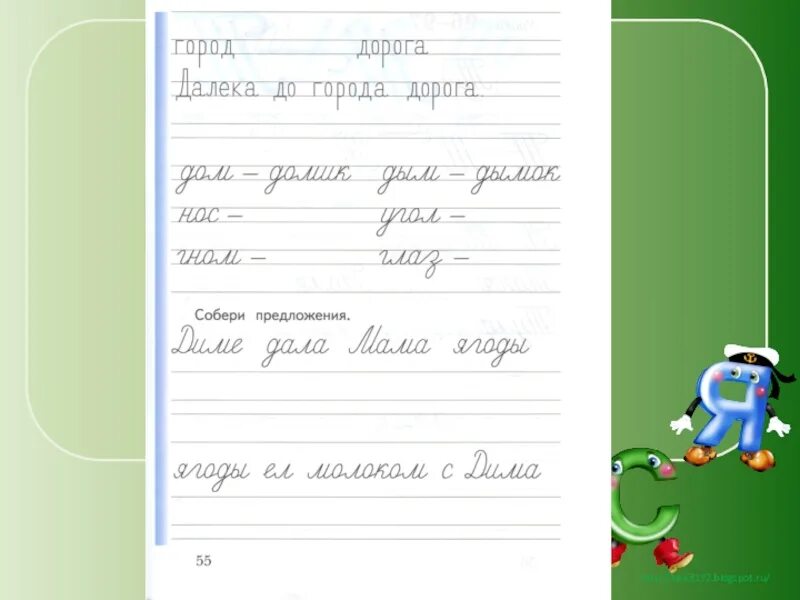 город дорога
Далека до города дорога.
дом – домик дым – дымок
нос – угол –
гном – глаз –
Собери предложения.
Диме дала Мама ягоды
ягоды ел молоком с Дима
55
Я
С